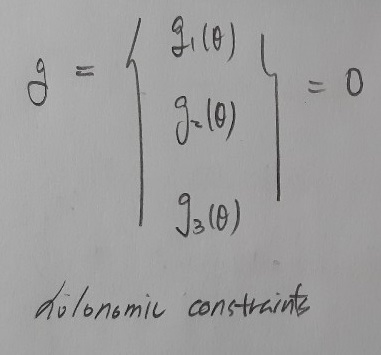 g₁(θ)
g = { g₂(θ) } = 0
g₃(θ)
holonomic constraints